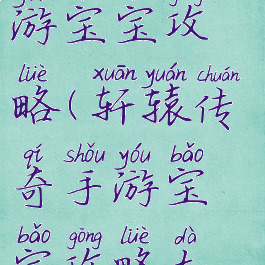 游宝宝攻
lüè xuān yuán chuán
略(轩辕传
qí shǒu yóu bǎo
奇手游宝
bǎo gōng lüè dà
宝攻略大